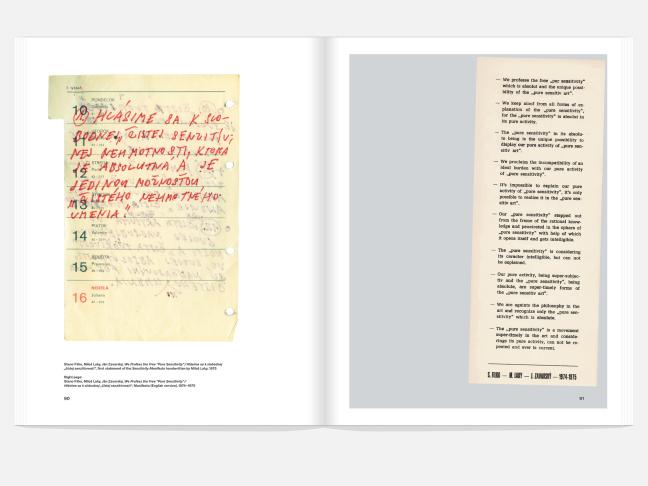 10
PONDELOK
① HLÁSIME SA K SLO-
BODNEJ, ČISTEJ SENZITÍV-
NEJ NEHMOTNOSTI, KTORÁ
JE ABSOLUTNÁ A JE
JEDINOU MOŽNOSŤOU
ČISTÉHO NEHMOTNÉHO
UMENIA.
11
12
13
14
PIATOK
15
SOBOTA
16
NEDEĽA
Juliana
Stano Filko, Miloš Laky, Ján Zavarský, We Profess the Free "Pure Sensitivity"
first statement of the Sensitivity Manifesto handwritten by Miloš Laky, 1973
Right page:
Stano Filko, Miloš Laky, Ján Zavarský, We Profess the Free "Pure Sensitivity"/
Manifesto (English version), 1974–1975
90
— We profess the free „our sensitivity"
which is absolut and the unique possi-
bility of the „pure sensitiv art".
— We keep aloof from all forms of ex-
planation of the „pure sensitivity",
for the „pure sensitivity" is absolut in
its pure activity.
— The „pure sensitivity" in its absolu-
te being is the unique possibility to
display our pure activity of „pure sen-
sitiv art".
— We proclaim the incompatibility of an
ideal burden with our pure activity
of „pure sensitivity".
— It's impossible to explain our pure
activity of „pure sensitivity", it's only
possible to realize it in the „pure sen-
sitiv art".
— Our „pure sensitivity" stepped out
from the frame of the rational know-
ledge and penetrated in the sphere of
„pure sensitivity" with help of which
it opens itself and gets intelligible.
— The „pure sensitivity" is considering
its caracter intelligible, but can not
be explained.
— Our pure activity, being super-subjec-
tiv and the „pure sensitivity", being
absolute, are super-timely forms of
the „pure sensitiv art".
— We are againts the philosophy in the
art and recognize only the „pure sen-
sitivity" which is absolute.
— The „pure sensitivity" is a movement
super-timely in the art and conside-
rings its pure activity, can not be re-
peated and ever is current.
S. FILKO — M. LAKY — J. ZAVARSKÝ — 1974-1975
91